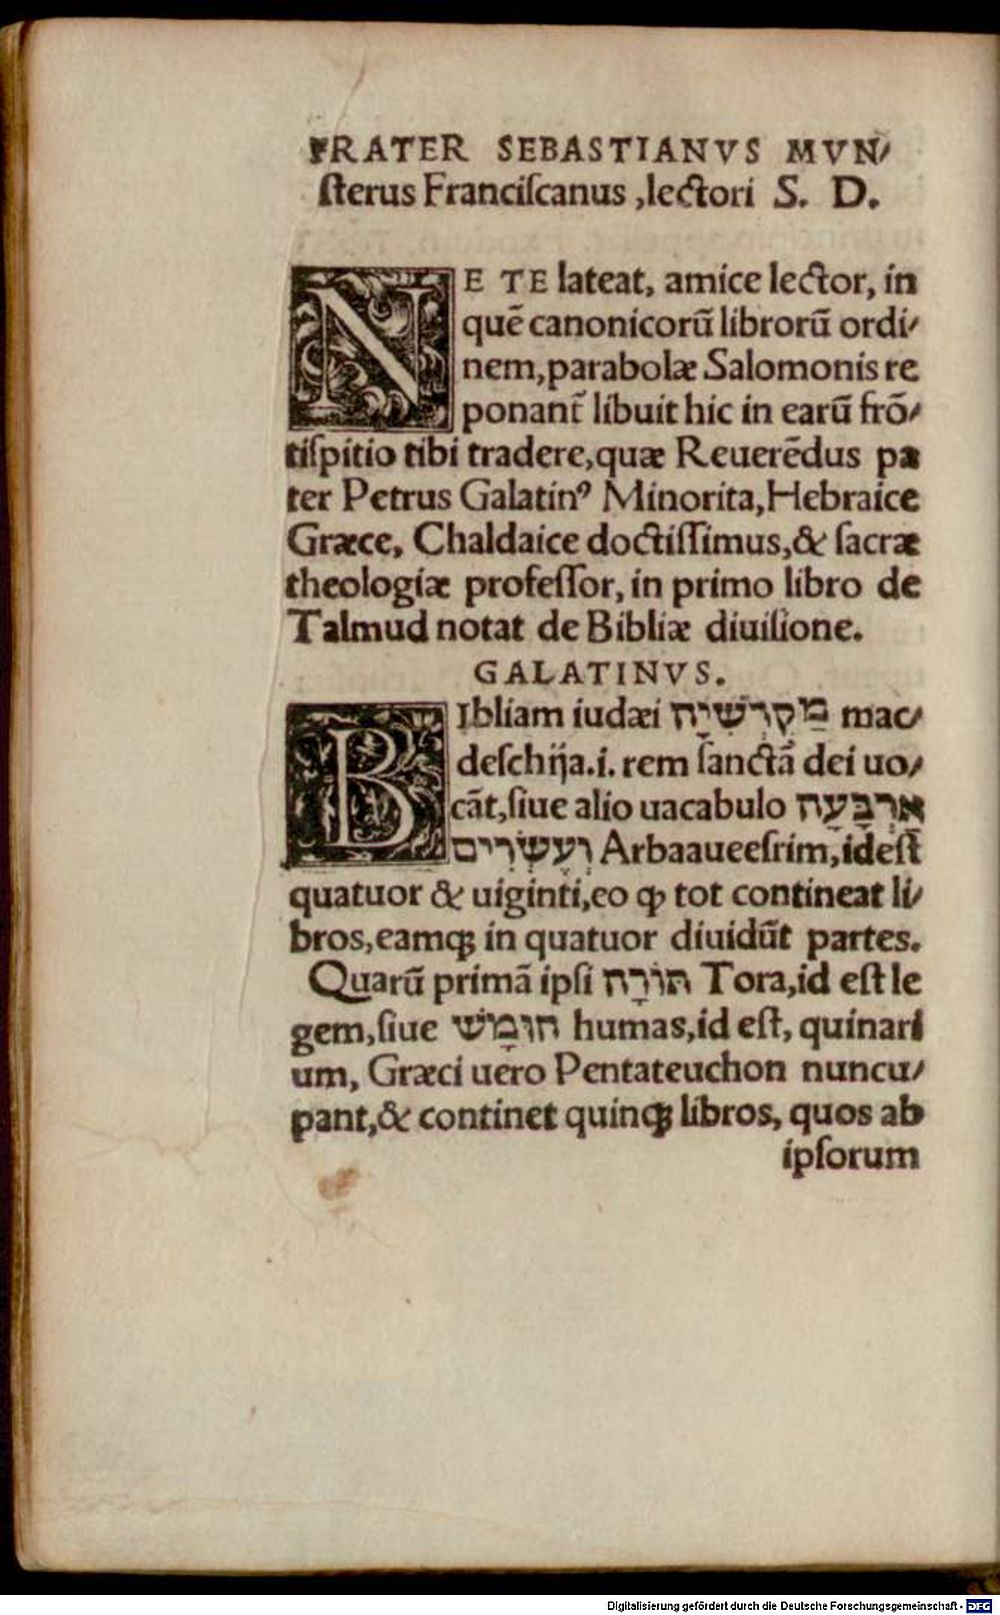 FRATER SEBASTIANVS MVN/
ſterus Franciſcanus ,lectori S. D.
NE TE lateat, amice lector, in
quē canonicorū librorū ordi/
nem,parabolæ Salomonis re
ponant̃ libuit hic in earū frō/
tiſpitio tibi tradere,quæ Reuerēdus pa
ter Petrus Galatinꝰ Minorita,Hebraice
Græce, Chaldaice doctiſſimus,& ſacræ
theologiæ profeſſor, in primo libro de
Talmud notat de Bibliæ diuiſione.
GALATINVS.
BIbliam iudæi מַקְדְשִׁיָה mac/
deſchija.i. rem ſanctā dei uo/
cāt,ſiue alio uacabulo אַרְבָּעָה
וְעֶשְׂרִים Arbaaueeſrim,ideſt
quatuor & uiginti,eo ꝙ tot contineat li/
bros,eamqꝫ in quatuor diuidūt partes.
Quarū primā ipſi תּוֹרָה Tora,id eſt le
gem,ſiue חוּמָשׁ humas,id eſt, quinari
um, Græci uero Pentateuchon nuncu/
pant,& continet quinqꝫ libros, quos ab
ipſorum
Digitalisierung gefördert durch die Deutsche Forschungsgemeinschaft - DFG